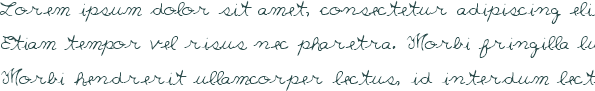 Lorem ipsum dolor sit amet, consectetur adipiscing eli
Etiam tempor vel risus nec pharetra. Morbi fringilla lu
Morbi hendrerit ullamcorper lectus, id interdum lect